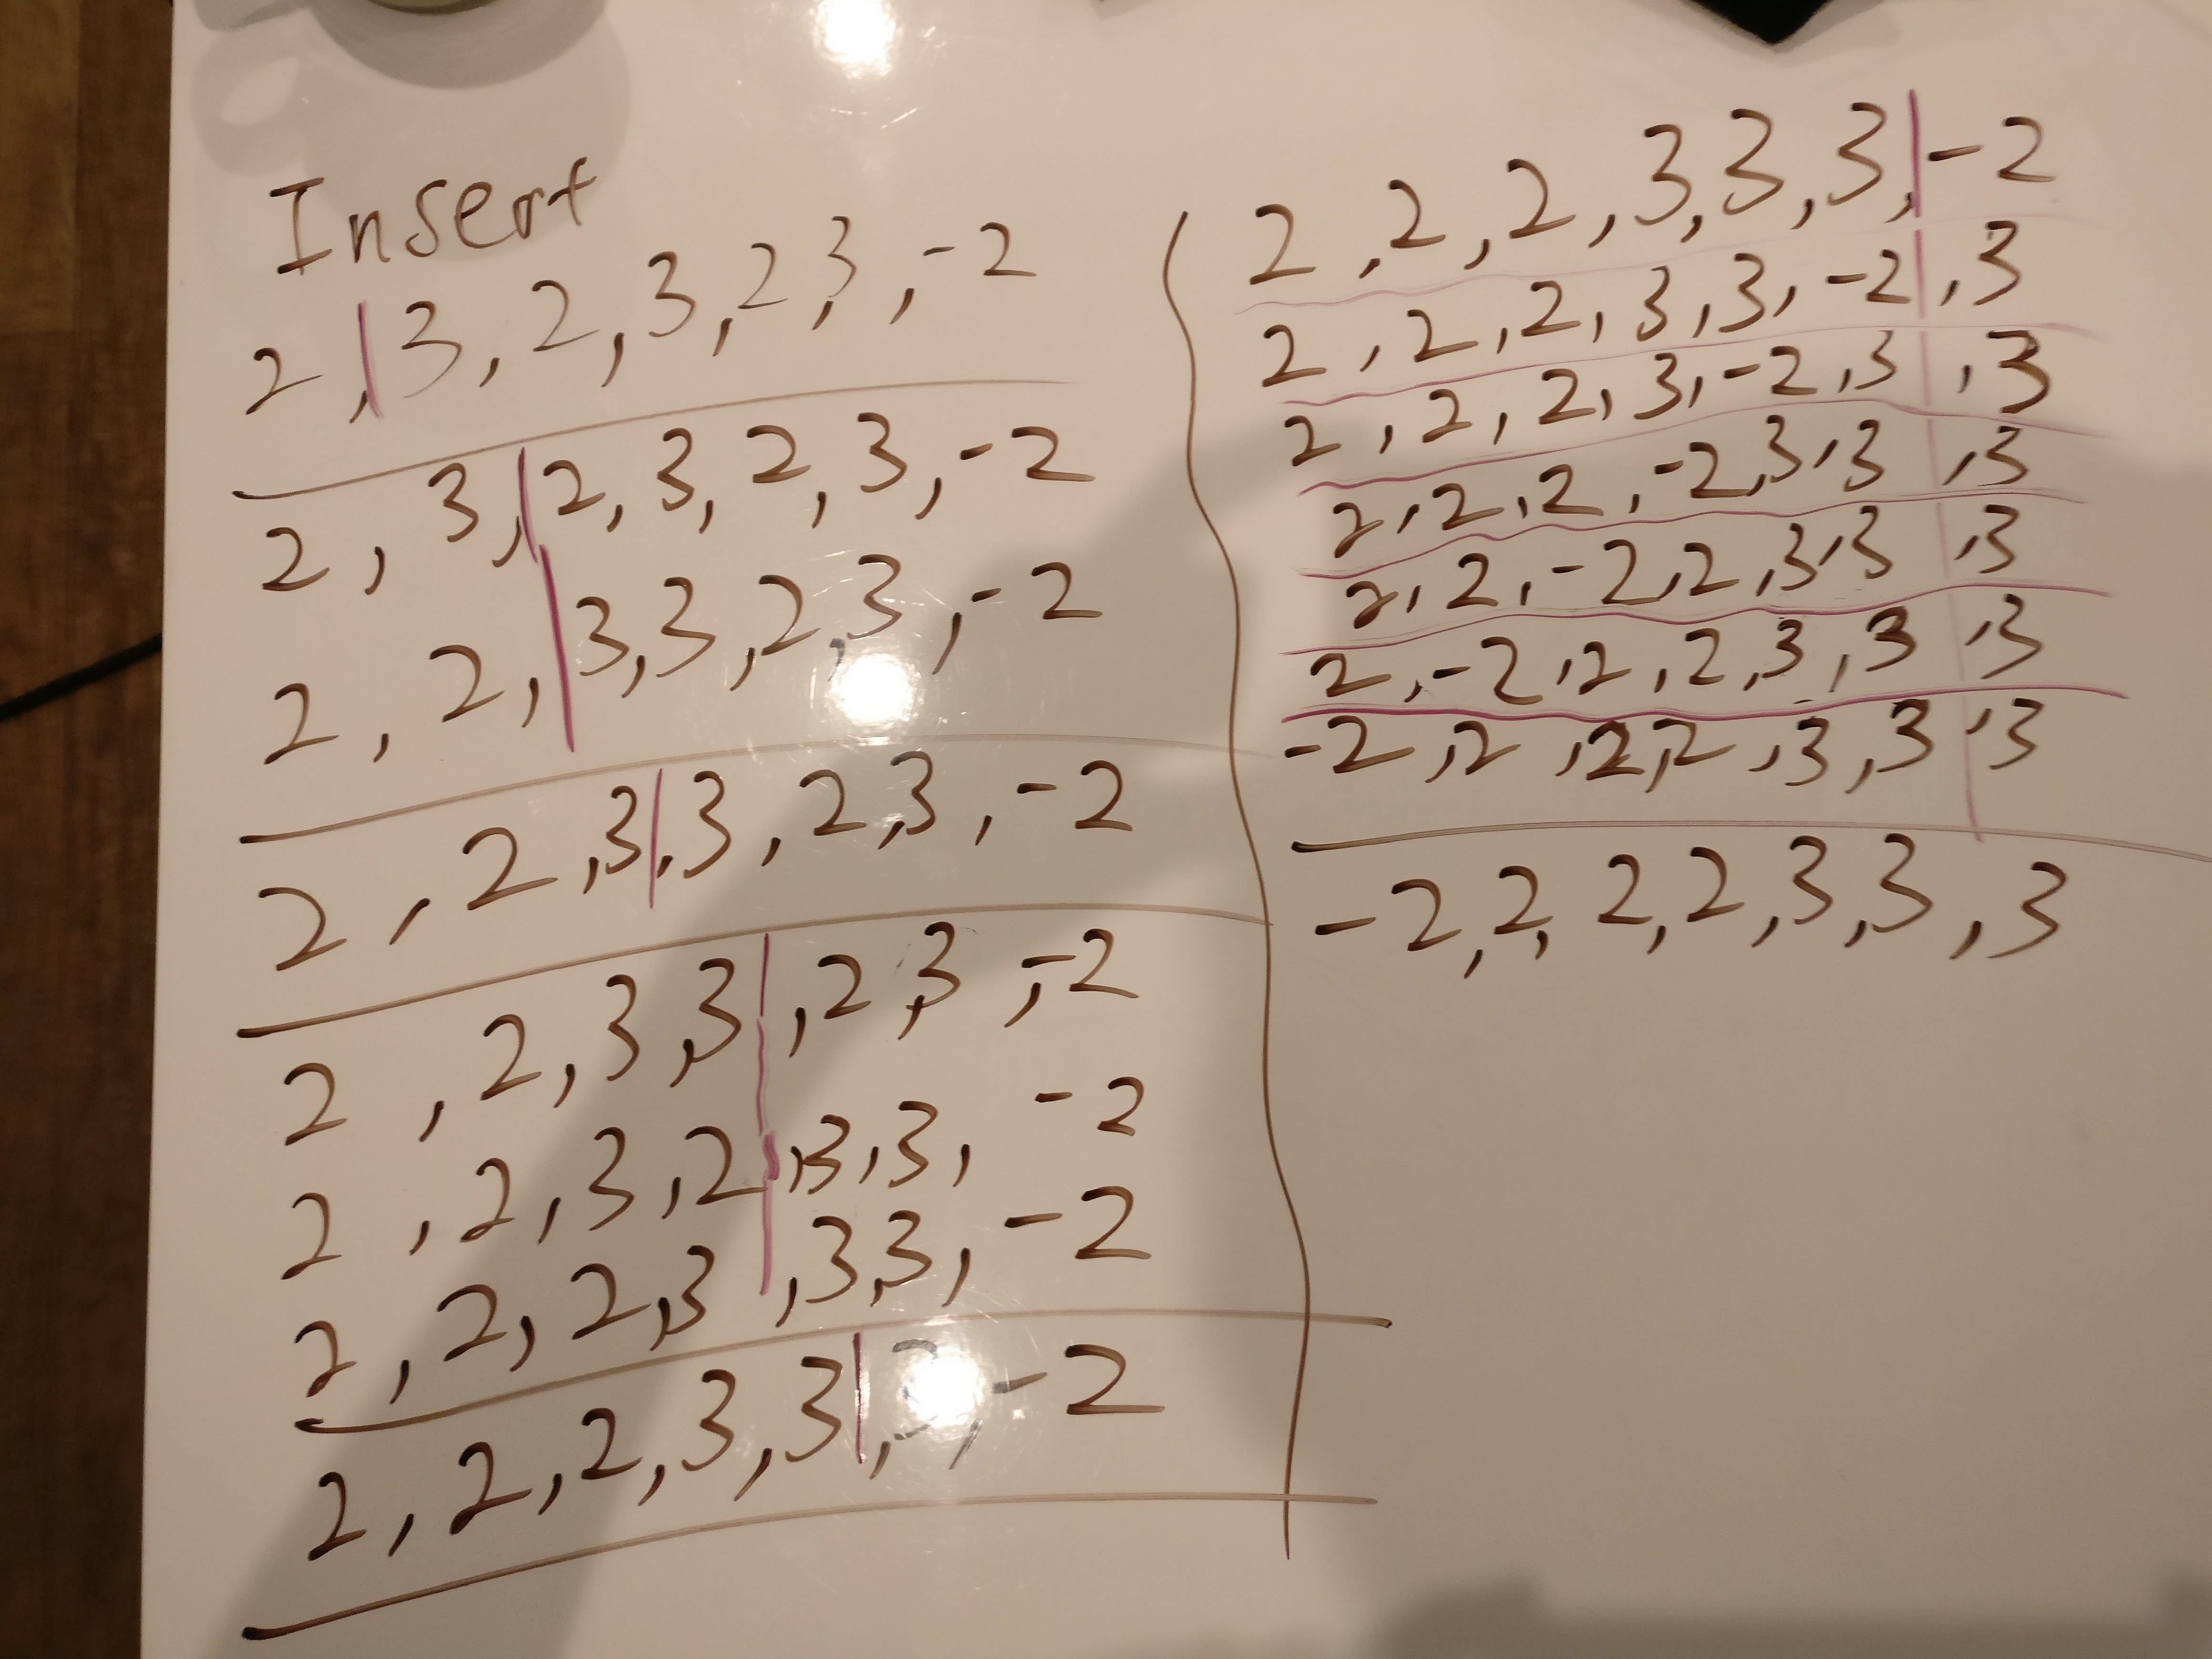 Insert
2,3,2,3,2,3,-2
2,3,2,3,2,3,-2
2,2,3,3,2,3,-2
2,2,3,3,2,3,-2
2,2,3,3,2,3,-2
2,2,3,2,3,3,-2
2,2,2,3,3,3,-2
2,2,2,3,3,3,-2
2,2,2,3,3,3,-2
2,2,2,3,3,-2,3
2,2,2,3,-2,3,3
2,2,2,-2,3,3,3
2,2,-2,2,3,3,3
2,-2,2,2,3,3,3
-2,2,2,2,3,3,3
-2,2,2,2,3,3,3